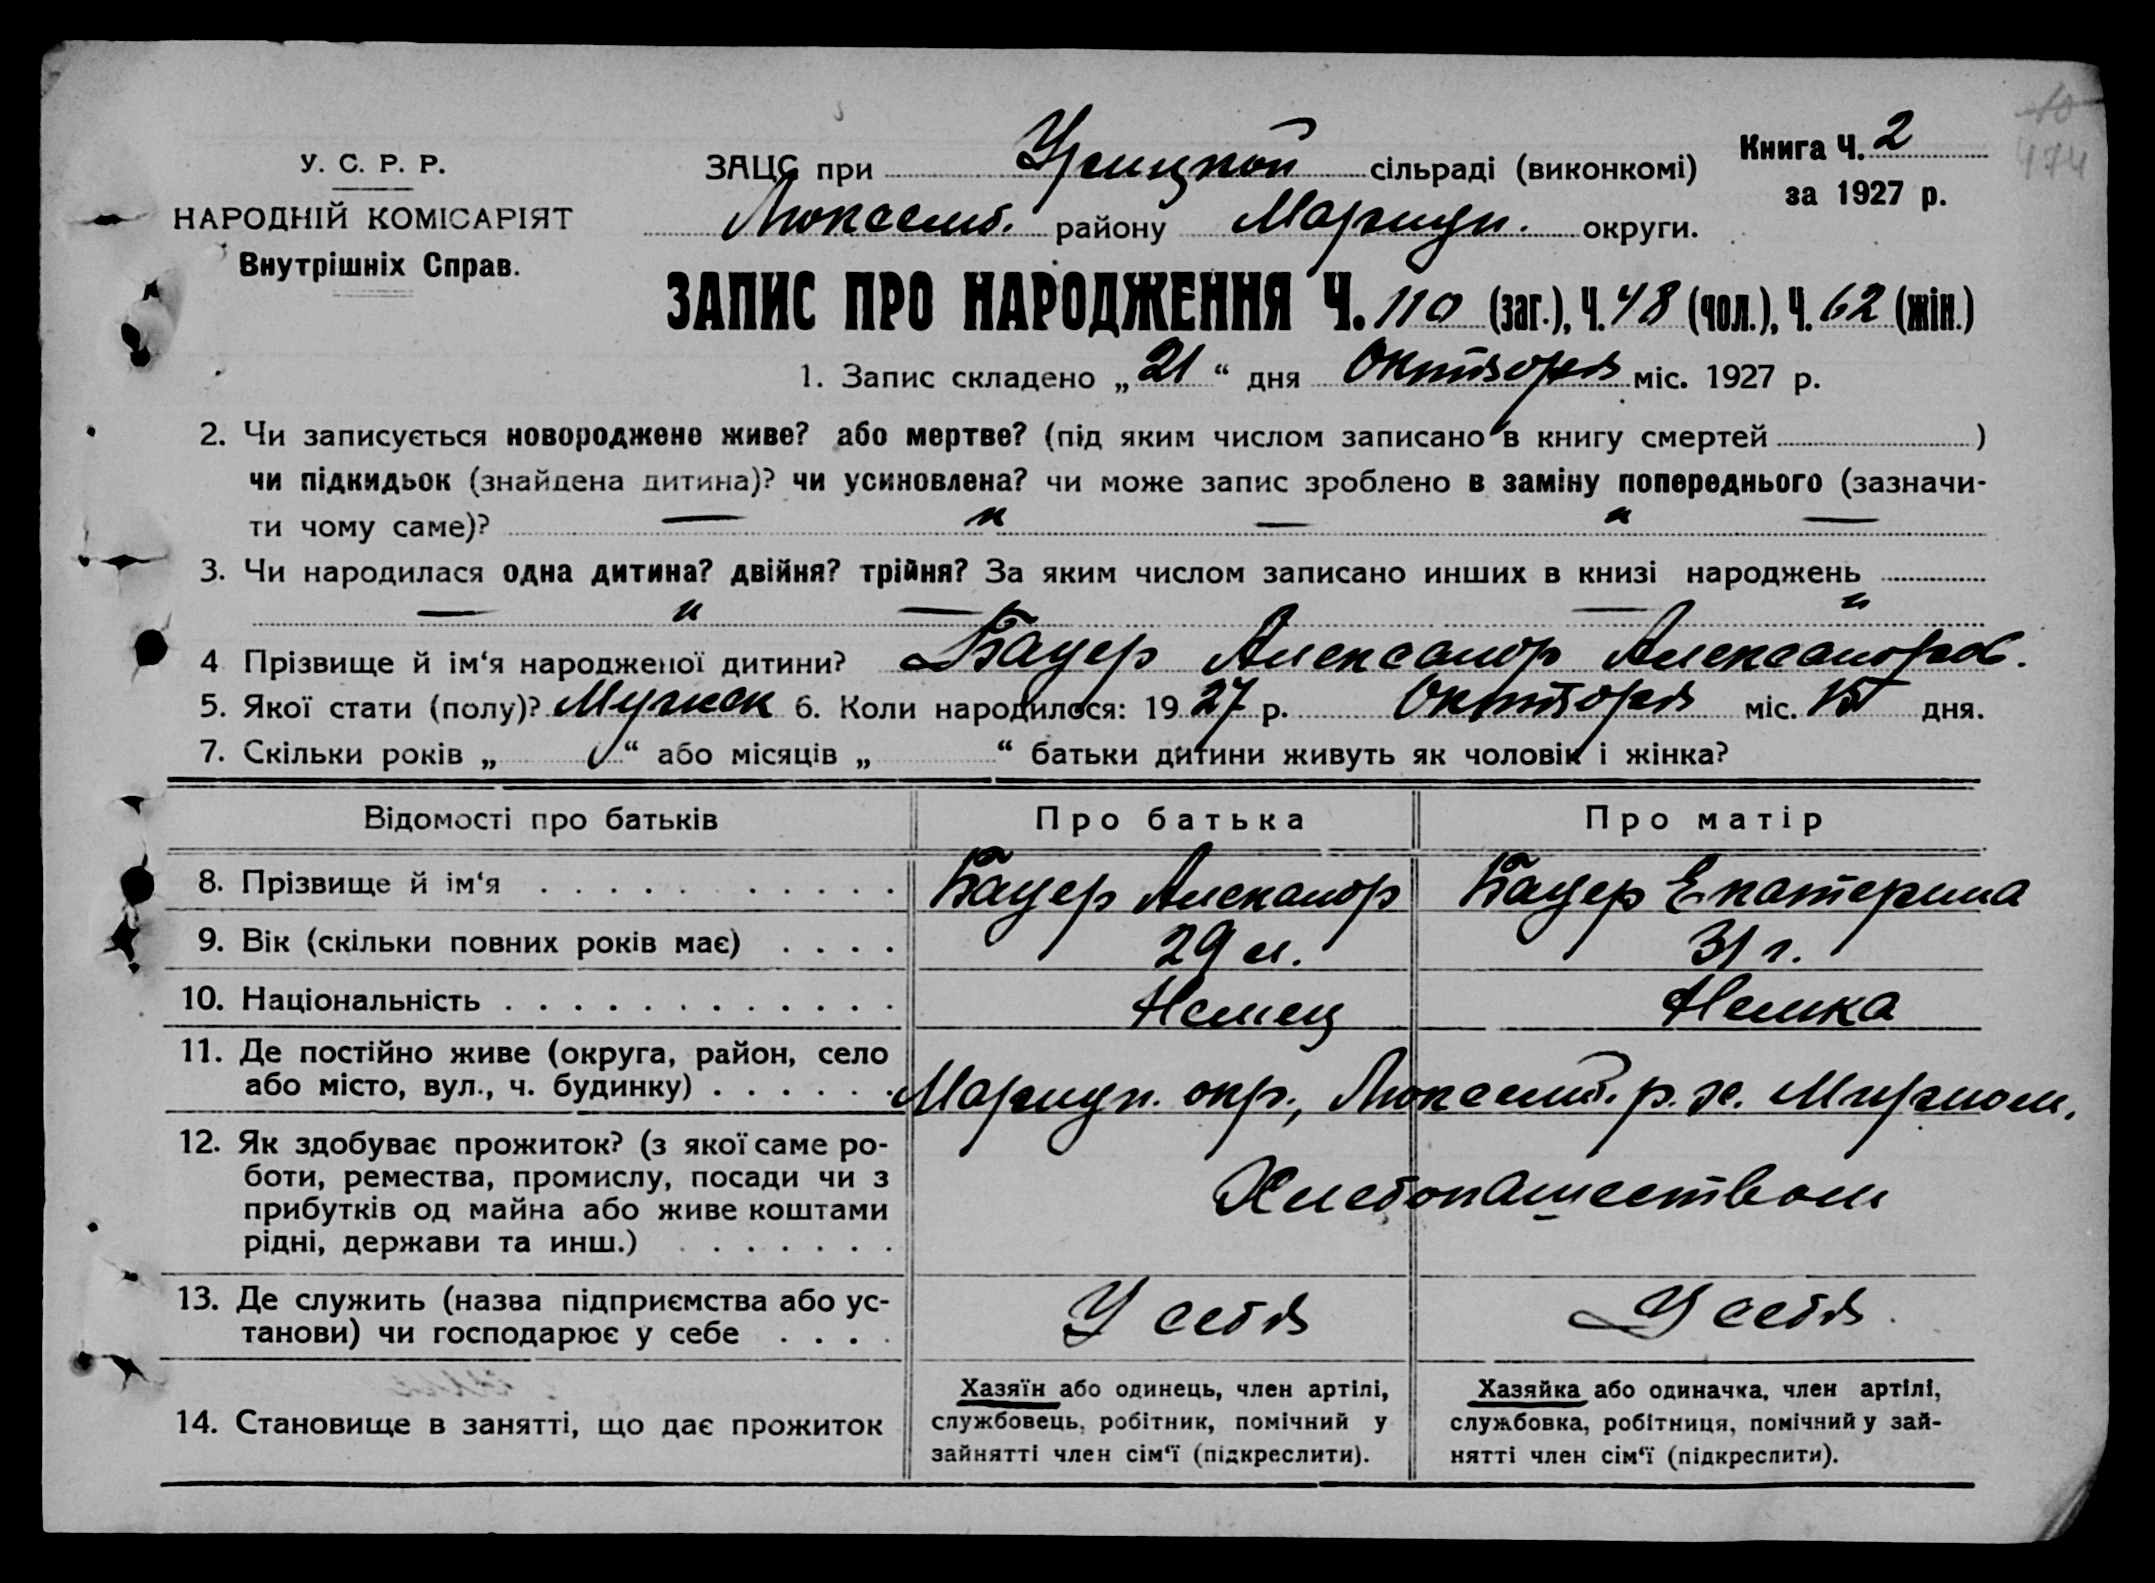 У. С. Р. Р.
НАРОДНІЙ КОМІСАРІЯТ
Внутрішніх Справ.
ЗАЦС при Урицкой сільраді (виконкомі)
Люксемб. району Мариуп. округи.
Книга Ч. 2
за 1927 р.
10
474
ЗАПИС ПРО НАРОДЖЕННЯ Ч. 110 (заг.), Ч. 48 (чол.), Ч. 62 (жін.)
1. Запис складено „21“ дня Октября міс. 1927 р.
2. Чи записується новороджене живе? або мертве? (під яким числом записано в книгу смертей )
чи підкидьок (знайдена дитина)? чи усиновлена? чи може запис зроблено в заміну попереднього (зазначи-
ти чому саме)? — „ — „ —
3. Чи народилася одна дитина? двійня? трійня? За яким числом записано инших в книзі народжень
— „ — — „
4 Прізвище й ім‘я народженої дитини? Бауер Александр Александров.
5. Якої стати (полу)? Мужск 6. Коли народилося: 1927 р. Октября міс. 15 дня.
7. Скільки років „ “ або місяців „ “ батьки дитини живуть як чоловік і жінка?
Відомості про батьків Про батька Про матір
8. Прізвище й ім‘я Бауер Александр Бауер Екатерина
9. Вік (скільки повних років має) 29 л. 31 г.
10. Національність Немец Немка
11. Де постійно живе (округа, район, село
або місто, вул., ч. будинку) Мариуп. окр., Люксемб. р.
12. Як здобуває прожиток? (з якої саме ро-
боти, ремества, промислу, посади чи з
прибутків од майна або живе коштами
рідні, держави та инш.) Хлебопашеством
13. Де служить (назва підприємства або ус-
танови) чи господарює у себе У себя У себя
14. Становище в занятті, що дає прожиток
Хазяїн або одинець, член артілі,
службовець, робітник, помічний у
зайнятті член сім‘ї (підкреслити).
Хазяйка або одиначка, член артілі,
службовка, робітниця, помічний у зай-
нятті член сім‘ї (підкреслити).